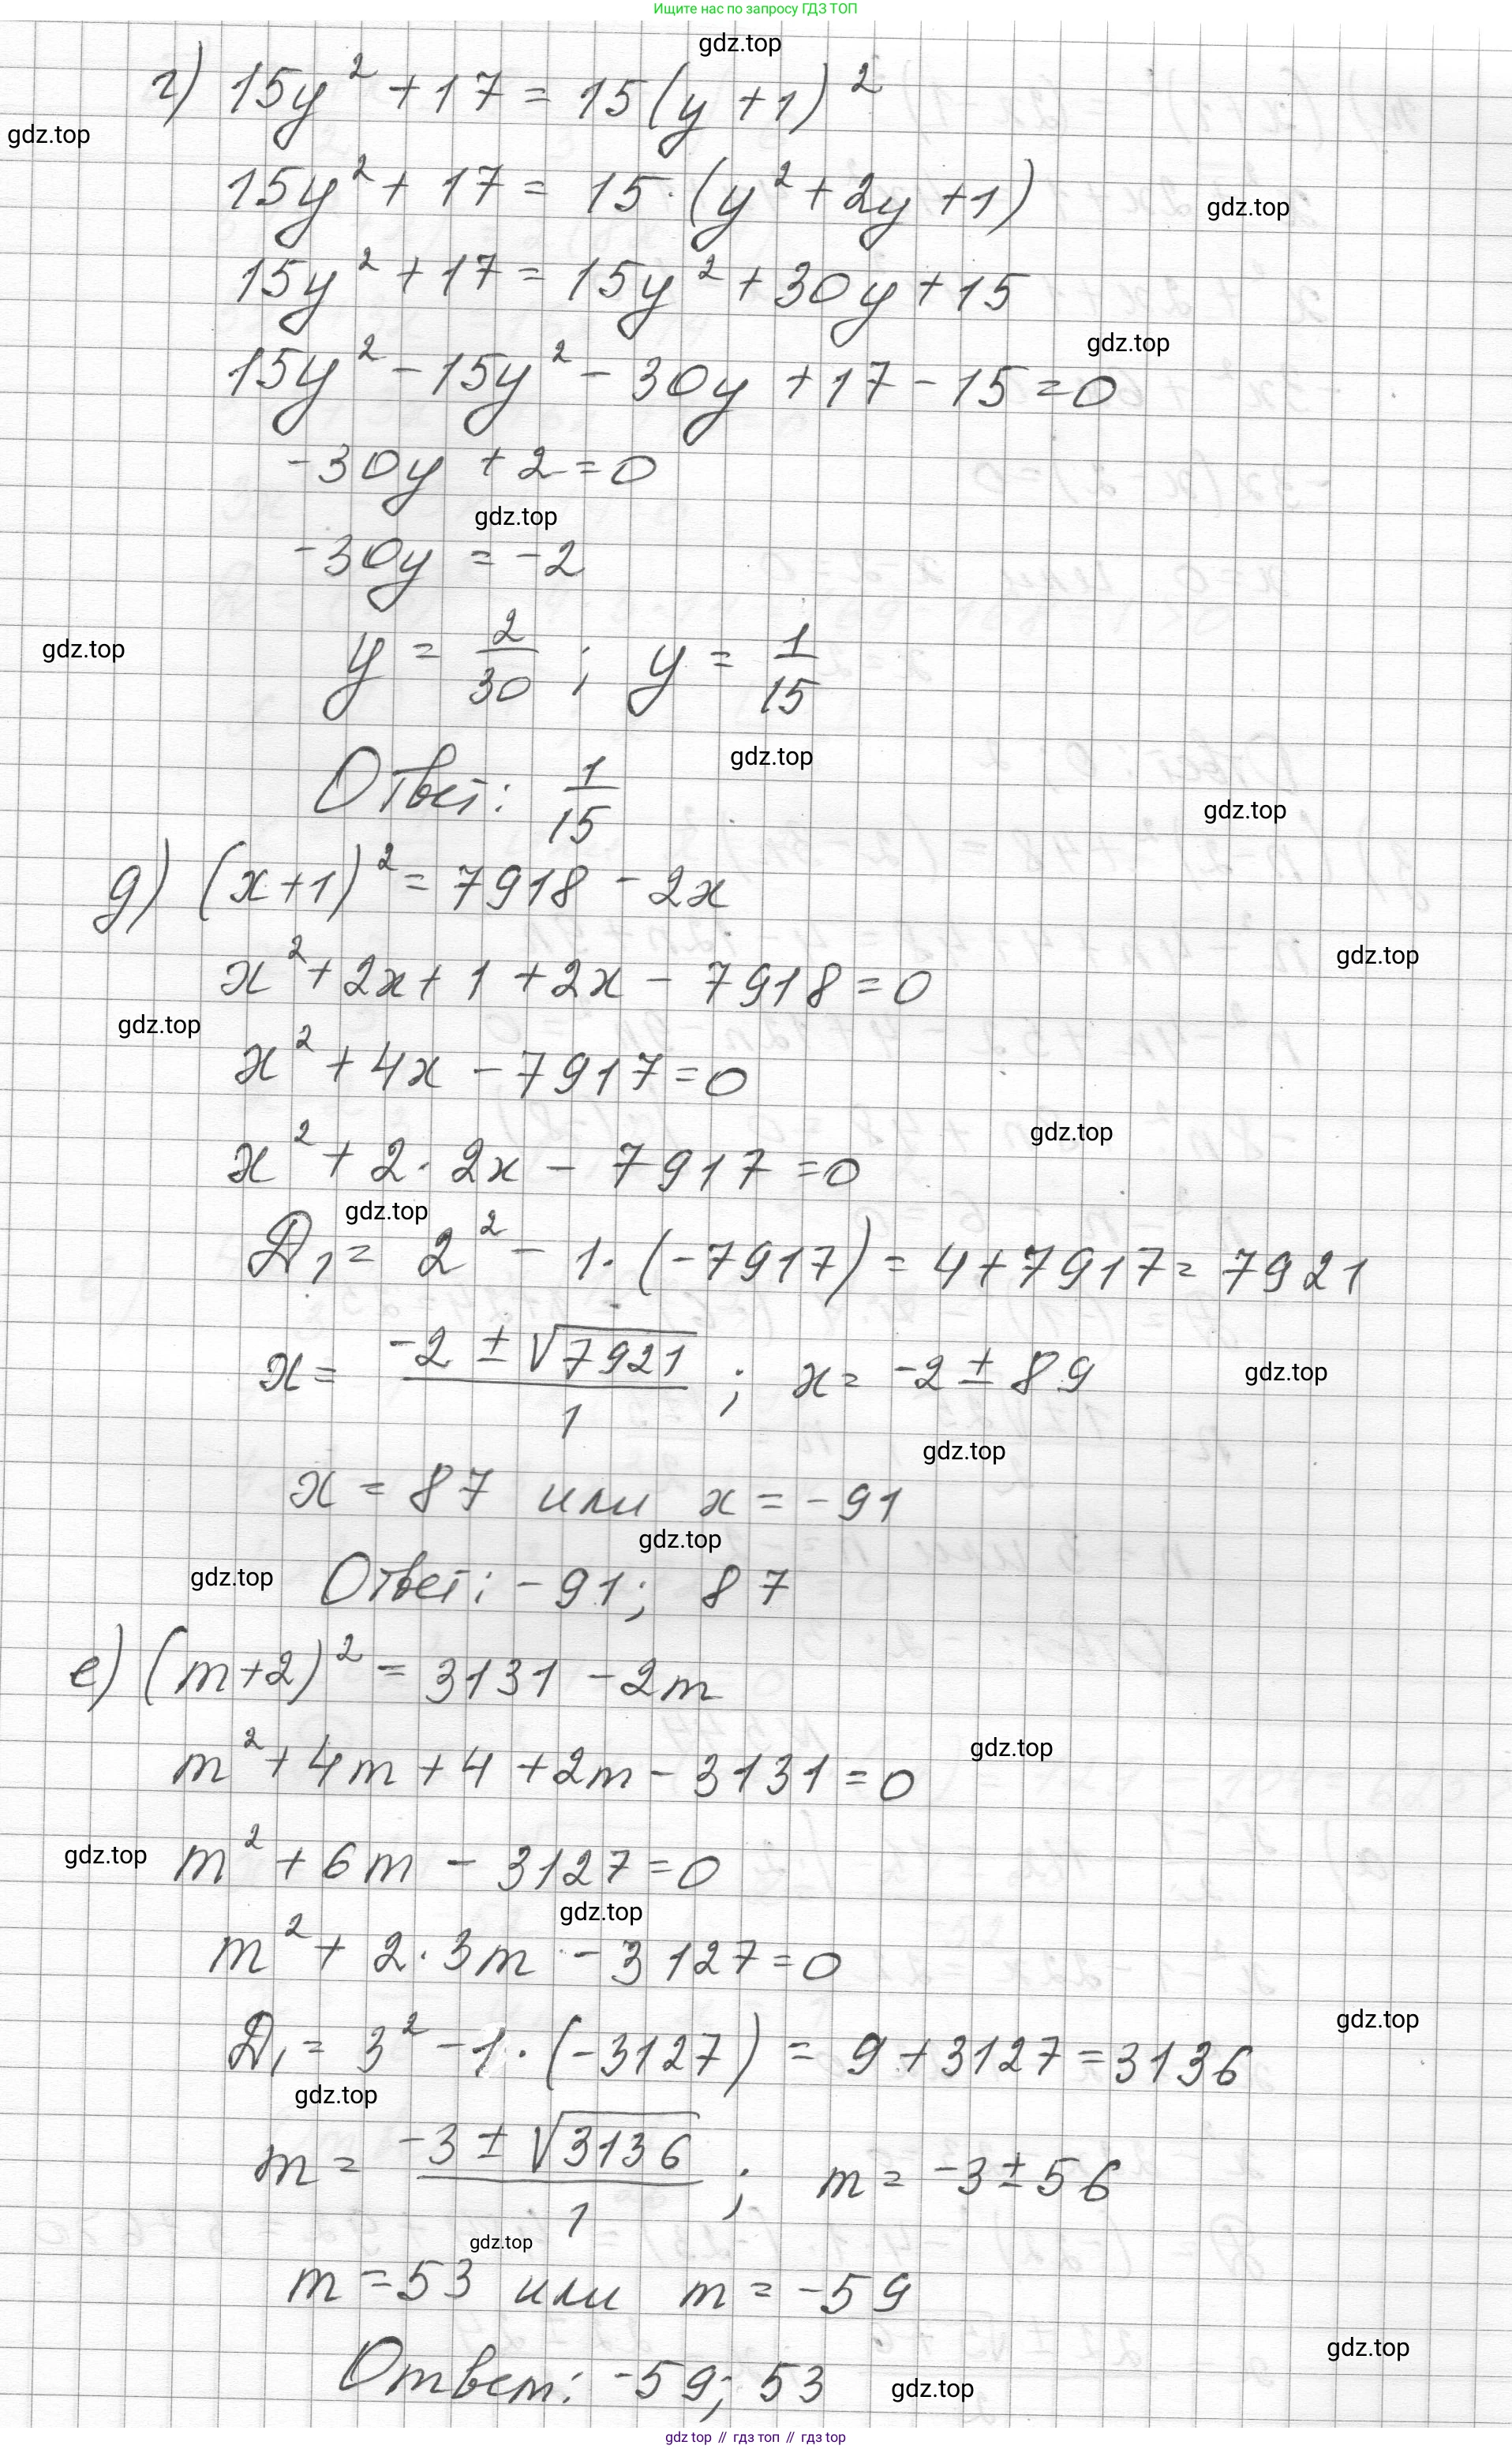 Ищите нас по запросу ГДЗ ТОП
gdz.top
г) 15y² + 17 = 15(y + 1)²
gdz.top
15y² + 17 = 15·(y² + 2y + 1)
gdz.top
15y² + 17 = 15y² + 30y + 15
gdz.top
15y² - 15y² - 30y + 17 - 15 = 0
-30y + 2 = 0
gdz.top
-30y = -2
gdz.top
y = 2/30 ; y = 1/15
gdz.top
Ответ: 1/15
gdz.top
д) (x+1)² = 7918 - 2x
gdz.top
x² + 2x + 1 + 2x - 7918 = 0
gdz.top
x² + 4x - 7917 = 0
gdz.top
x² + 2· 2x - 7917 = 0
gdz.top
Д₁ = 2² - 1·(-7917) = 4 + 7917 = 7921
x = (-2 ± √7921)/1 ; x = -2 ± 89
gdz.top
gdz.top
x = 87 или x = -91
gdz.top
gdz.top
Ответ: -91; 87
е) (m+2)² = 3131 - 2m
gdz.top
m² + 4m + 4 + 2m - 3131 = 0
gdz.top
m² + 6m - 3127 = 0
gdz.top
m² + 2·3m - 3127 = 0
gdz.top
Д₁ = 3² - 1·(-3127) = 9 + 3127 = 3136
gdz.top
m = (-3 ± √3136)/1 ; m = -3 ± 56
gdz.top
m = 53 или m = -59
gdz.top
Ответ: -59; 53
gdz.top
gdz top // гдз топ // гдз top